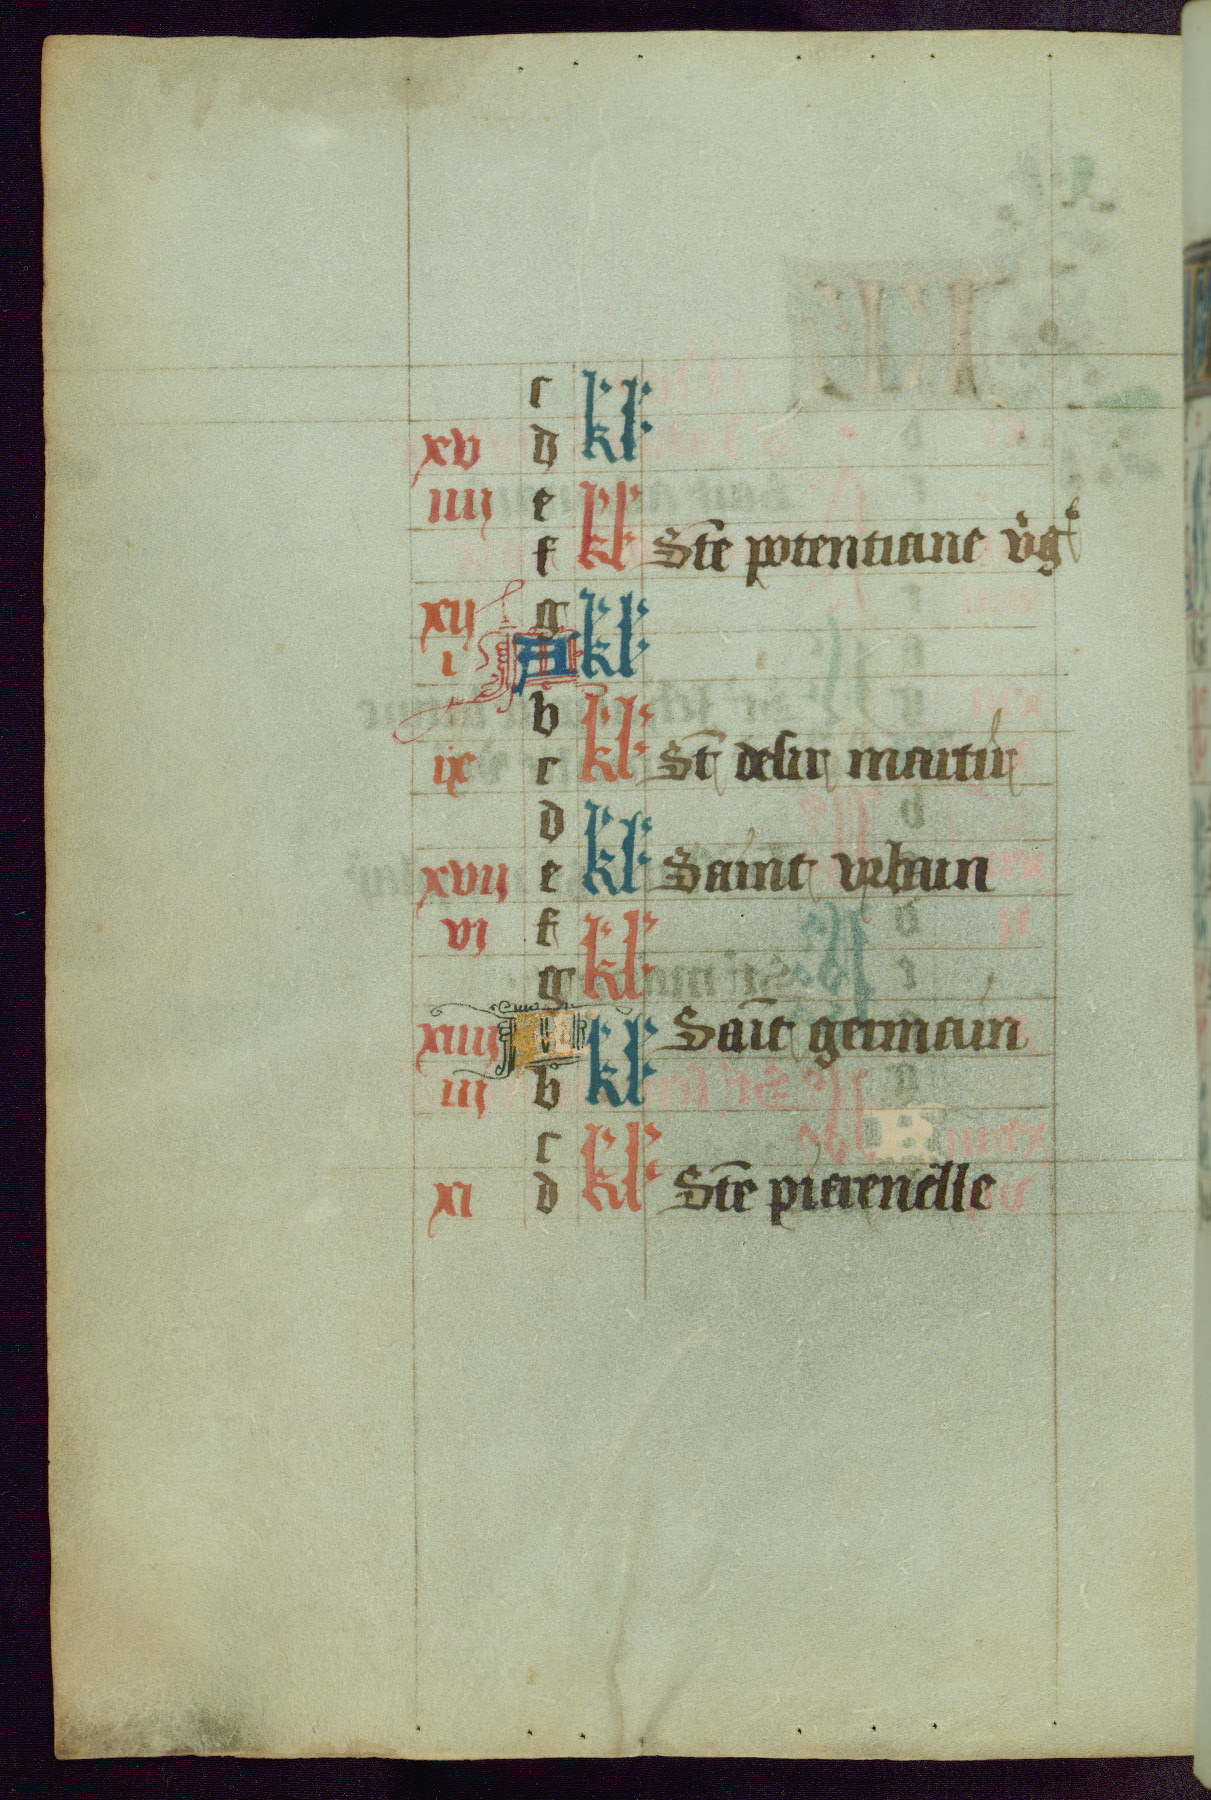 c kl
xv d
iiij e kl
f Ste potentiane v'g'
xij g kl
i A
b kl
ix c St desir martir
d kl
xvij e Saint vrbain
vi f kl
g
xiiij A kl Sait germain
iij b
c kl
xi d Ste pierenelle